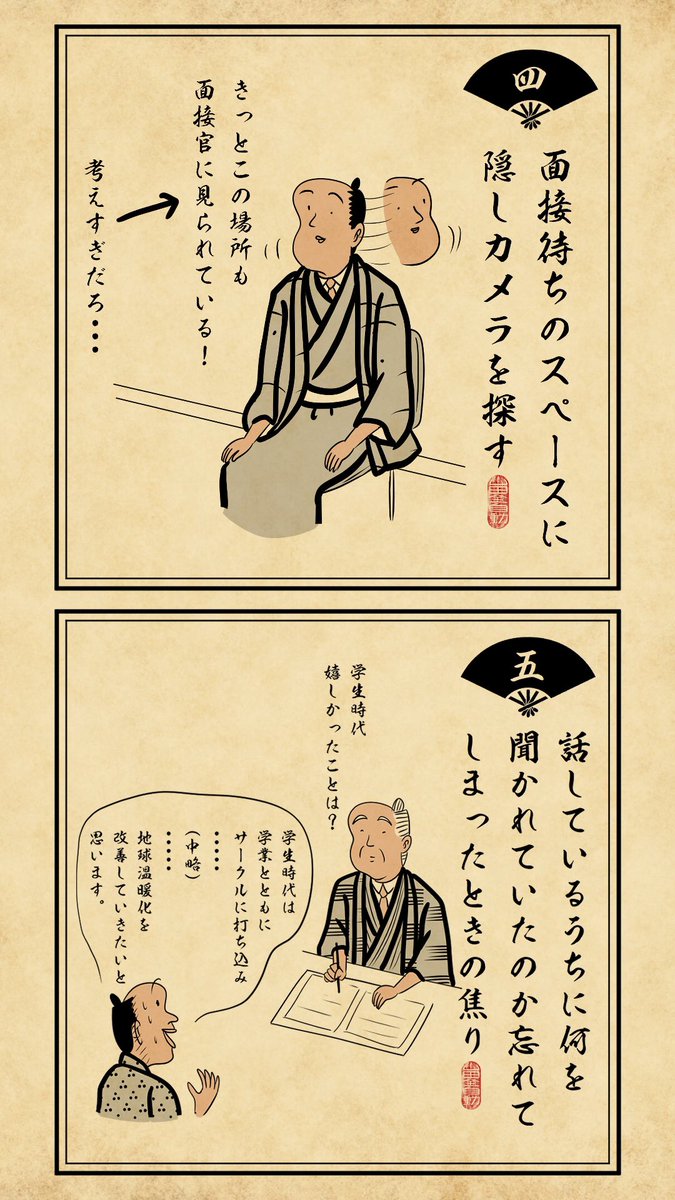 四
面接待ちのスペースに
隠しカメラを探す
きっとこの場所も
面接官に見られている!
考えすぎだろ・・・
五
話しているうちに何を
聞かれていたのか忘れて
しまったときの焦り
学生時代
嬉しかったことは?
学生時代は
学業とともに
サークルに打ち込み
・・・・・
(中略)
・・・・・
地球温暖化を
改善していきたいと
思います。